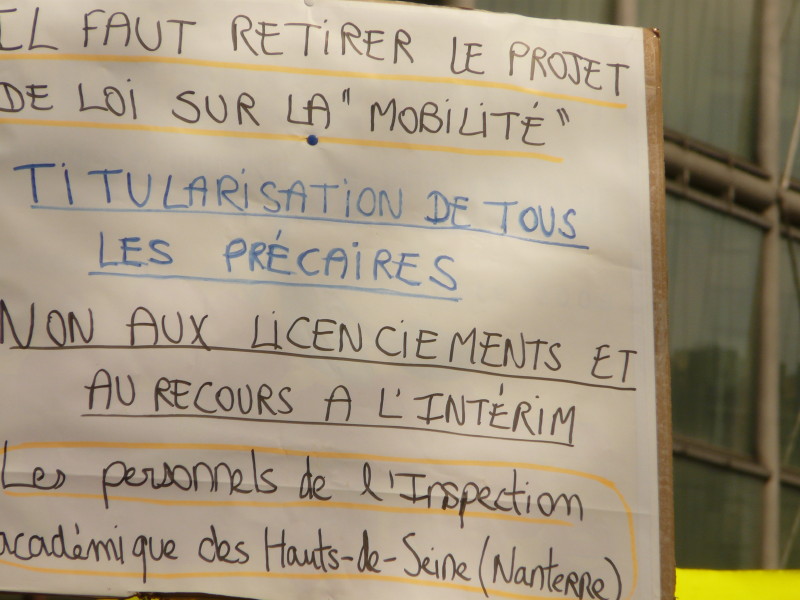 IL FAUT RETIRER LE PROJET
DE LOI SUR LA "MOBILITÉ"
TITULARISATION DE TOUS
LES PRÉCAIRES
NON AUX LICENCIEMENTS ET
AU RECOURS A L'INTÉRIM
Les personnels de l'Inspection
académique des Hauts-de-Seine (Nanterre)